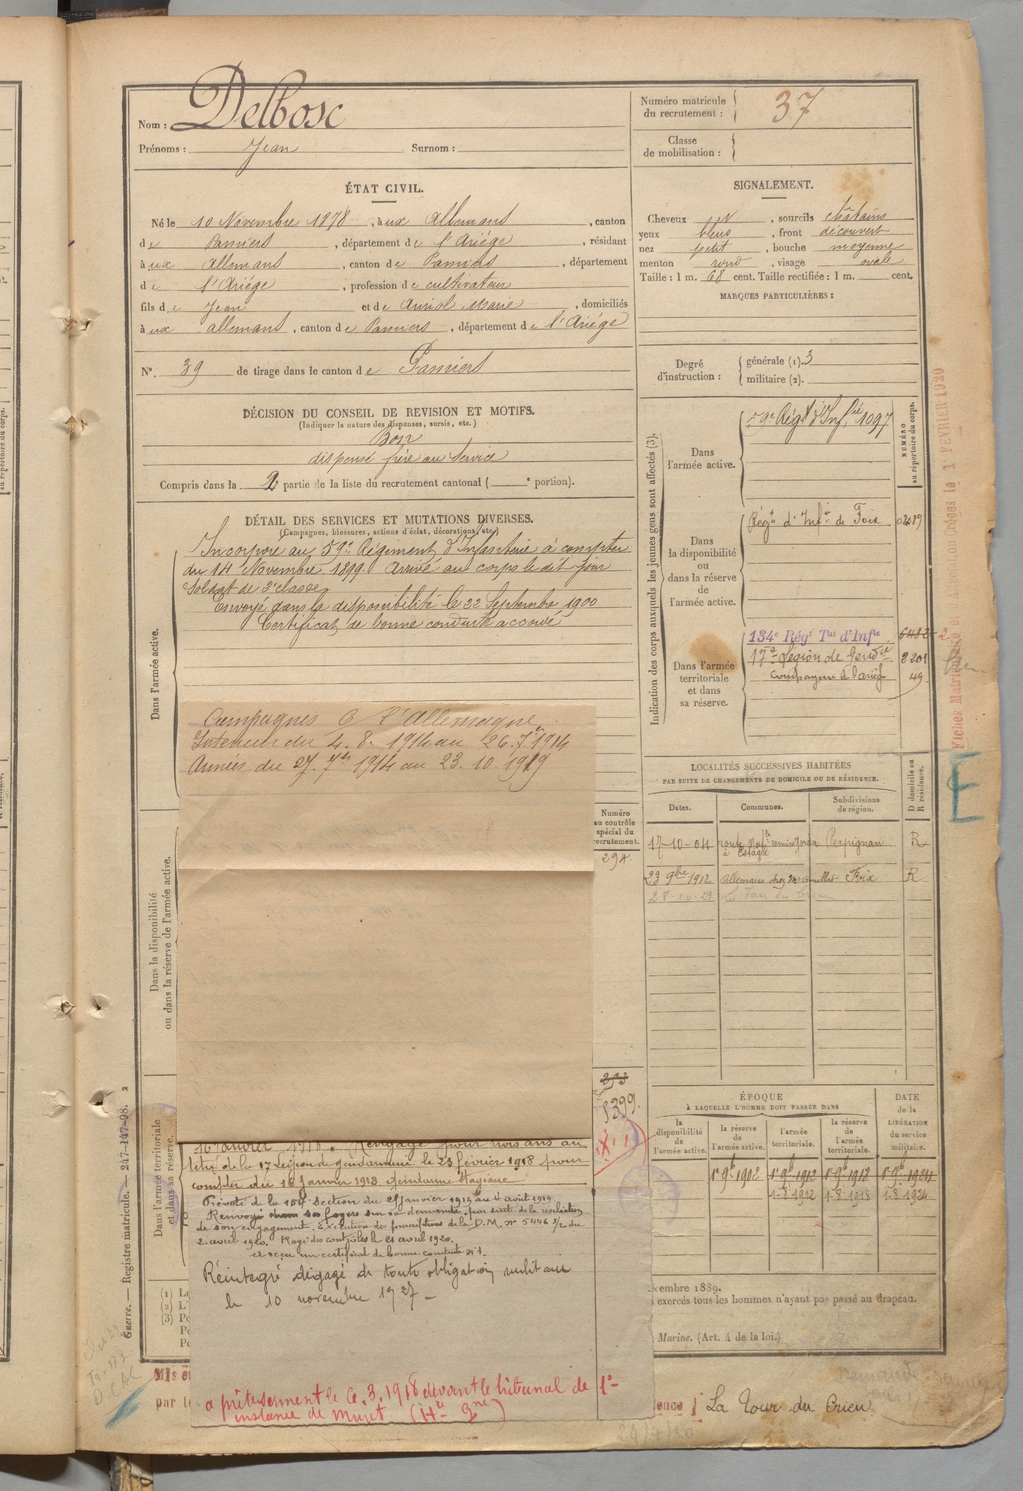 Nom : Delbosc
Prénoms : Jean Surnom :
Numéro matricule
du recrutement : 37
Classe
de mobilisation :
ÉTAT CIVIL.
Né le 10 Novembre 1878, à ux Allemans, canton
de Pamiers, département de l'Ariége, résidant
à ux Allemans, canton de Pamiers, département
de l'Ariége, profession de cultivateur
fils de Jean et de Auriol Marie, domiciliés
à ux allemans, canton de Pamiers, département de l'Ariége
N°. 39 de tirage dans le canton de Pamiers
SIGNALEMENT.
Cheveux N, sourcils châtains
yeux bleus, front découvert
nez petit, bouche moyenne
menton rond, visage ovale
Taille : 1 m. 68 cent. Taille rectifiée : 1 m. cent.
MARQUES PARTICULIÈRES :
Degré
d'instruction :
générale (1). 3
militaire (2).
DÉCISION DU CONSEIL DE REVISION ET MOTIFS.
(Indiquer la nature des dispenses, sursis, etc.)
Bon
dispensé frère au service
Compris dans la 2e partie de la liste du recrutement cantonal ( e portion).
DÉTAIL DES SERVICES ET MUTATIONS DIVERSES.
(Campagnes, blessures, actions d'éclat, décorations, etc.)
Dans l'armée active.
Incorporé au 59e Régiment d'Infanterie à compter
du 14 Novembre 1899. Arrivé au corps le dit jour
Soldat de 2e classe
Envoyé dans la disponibilité le 22 Septembre 1900
Certificat de bonne conduite accordé
Indication des corps auxquels les jeunes gens sont affectés (3).
NUMÉRO
au répertoire du corps.
Dans
l'armée active.
59e Régt d'Infie 1097
Dans
la disponibilité
ou
dans la réserve
de
l'armée active.
Régt d'Infie de Foix
Dans l'armée
territoriale
et dans
sa réserve.
134e Régt Tal d'Infie
17e Légion de Gendie 2201
compagnie de l'Ariège 49
Fiches Matricules
1 FÉVRIER 1920
Campagnes c l'Allemagne
Intérieur du 4.8.1914 au 26.7bre 1914
Armées du 27.7bre 1914 au 23.10.1919
Dans la disponibilité
ou dans la réserve de l'armée active.
Numéro
au contrôle
spécial du
recrutement.
294
LOCALITÉS SUCCESSIVES HABITÉES
PAR SUITE DE CHANGEMENTS DE DOMICILE OU DE RÉSIDENCE.
Dates. Communes. Subdivisions
de région. D domicile ou
R résidence.
17-10-04 à Estagel Perpignan R
23 9bre 1912 Allemans Foix R
28-10-29 La Tour du Crieu
Dans l'armée territoriale
et dans sa réserve.
8399
16 janvier 1918. Rengagé pour trois ans au
titre de la 17 Légion de gendarmerie le 23 février 1918 pour
compter du 16 janvier 1918. Gendarme stagiaire
Renvoyé dans ses foyers sur sa demande
de son engagement. Exécution des prescriptions de la D.M. n° 5446 3/2 du
2 avril 1920. Rayé des contrôles le 21 avril 1920.
a reçu un certificat de bonne conduite
Réintégré dégagé de toute obligation militaire
le 10 novembre 1927 -
a prêté serment le 6.3.1918 devant le tribunal de 1e-
instance de Muret. (Hte Gne)
ÉPOQUE
À LAQUELLE L'HOMME DOIT PASSER DANS
la
disponibilité
de
l'armée active.
la réserve
de
l'armée active.
l'armée
territoriale.
la réserve
de l'armée
territoriale.
DATE
de la
LIBÉRATION
du service
militaire.
1er 9bre 1902 1er 9bre 1912 1er 9bre 1918 1er 9bre 1924
1-8-1912 1-8-1918 1-8-1924
Guerre. — Registre matricule. — 247-147-98. 2
(1)
(2)
(3)
décembre 1889.
exercés tous les hommes n'ayant pas passé au drapeau.
Marine. (Art. 4 de la loi.)
La Tour du Crieu